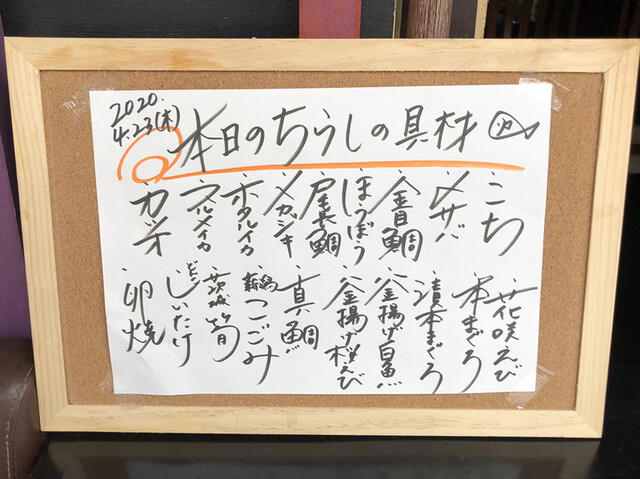 2020.
4.23(木)
本日のちらしの具材
・こち
・〆サバ
・金目鯛
・ほうぼう
・尾長鯛
・メカジキ
・ホタルイカ
・スルメイカ
・カツオ
・花咲えび
・本まぐろ
・漬本まぐろ
・釜揚げ白魚
・釜揚げ桜えび
・真鯛
・新潟こごみ
・茨城筍
しいたけ
・卵焼